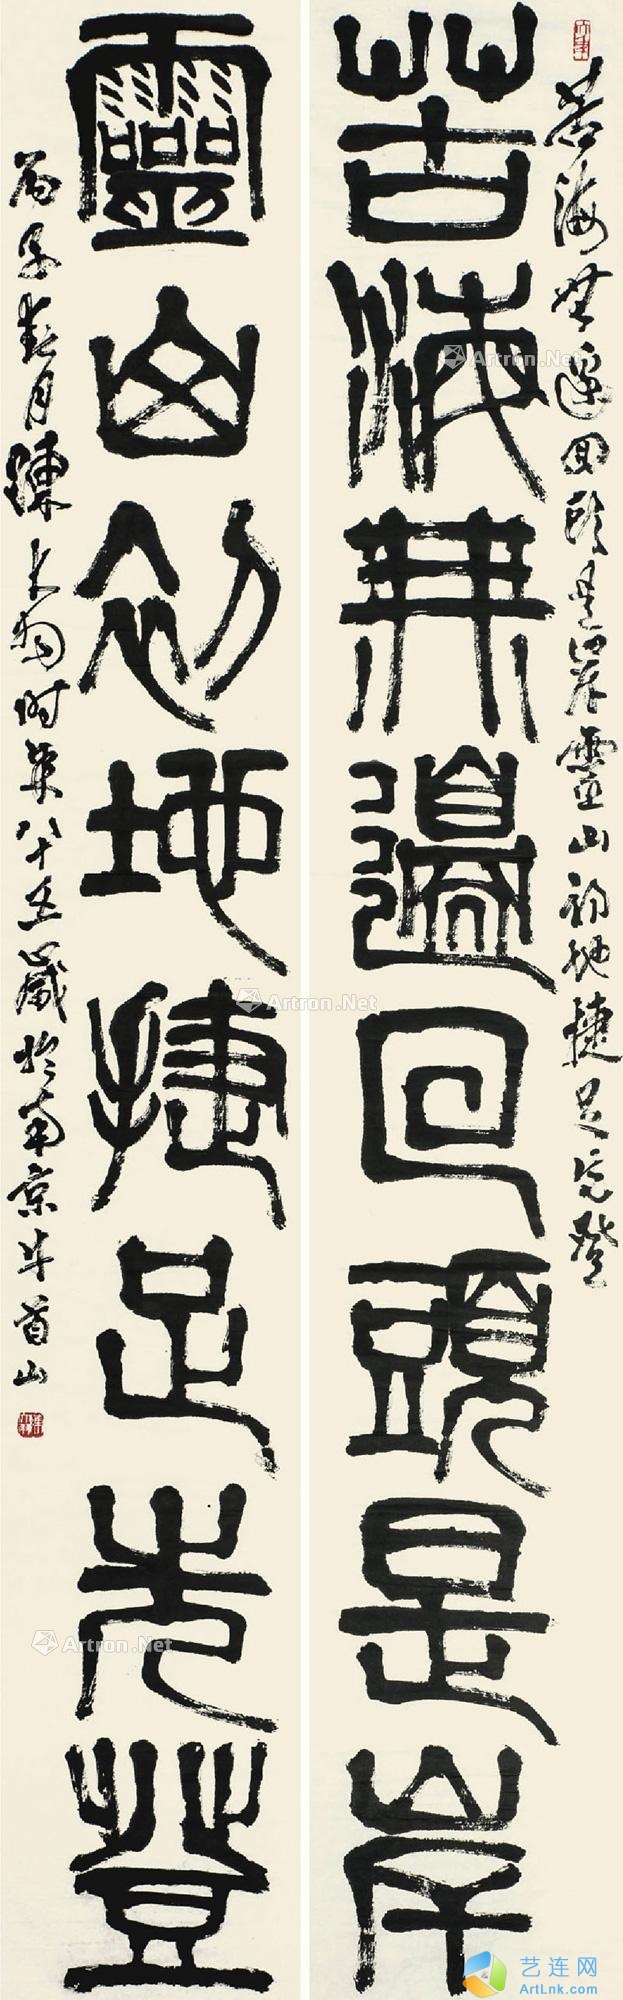 苦海無邊回頭是岸
苦海無邊回頭是岸靈山初地捷足先登
靈山初地捷足先登
丙子秋月陳大羽時年八十五歲於南京牛首山
Artron.Net
Artron.Net
Artron.Net
Artron.Net
艺连网
ArtLnk.Com